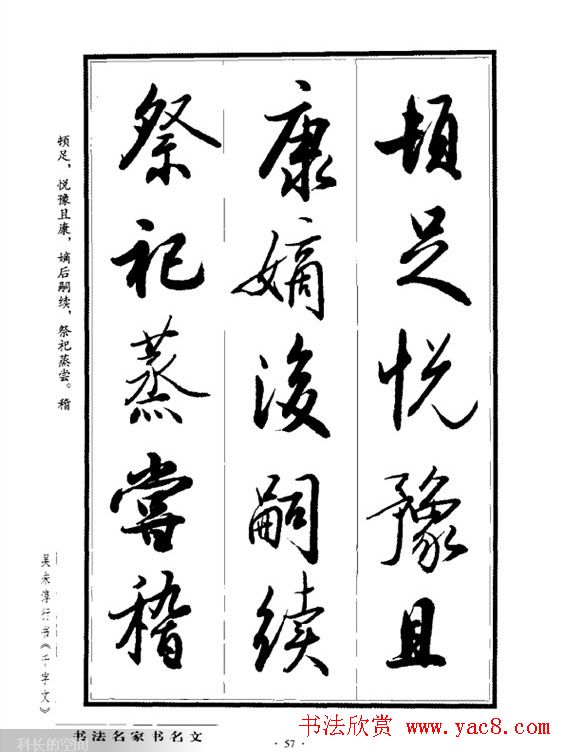 顿足悦豫且
康嫡後嗣续
祭祀蒸尝稽
顿足，悦豫且康，嫡后嗣续，祭祀蒸尝。稽
吴未淳行书《千字文》
书法名家书名文
·57·
书法欣赏 www.yac8.com
科长的空间